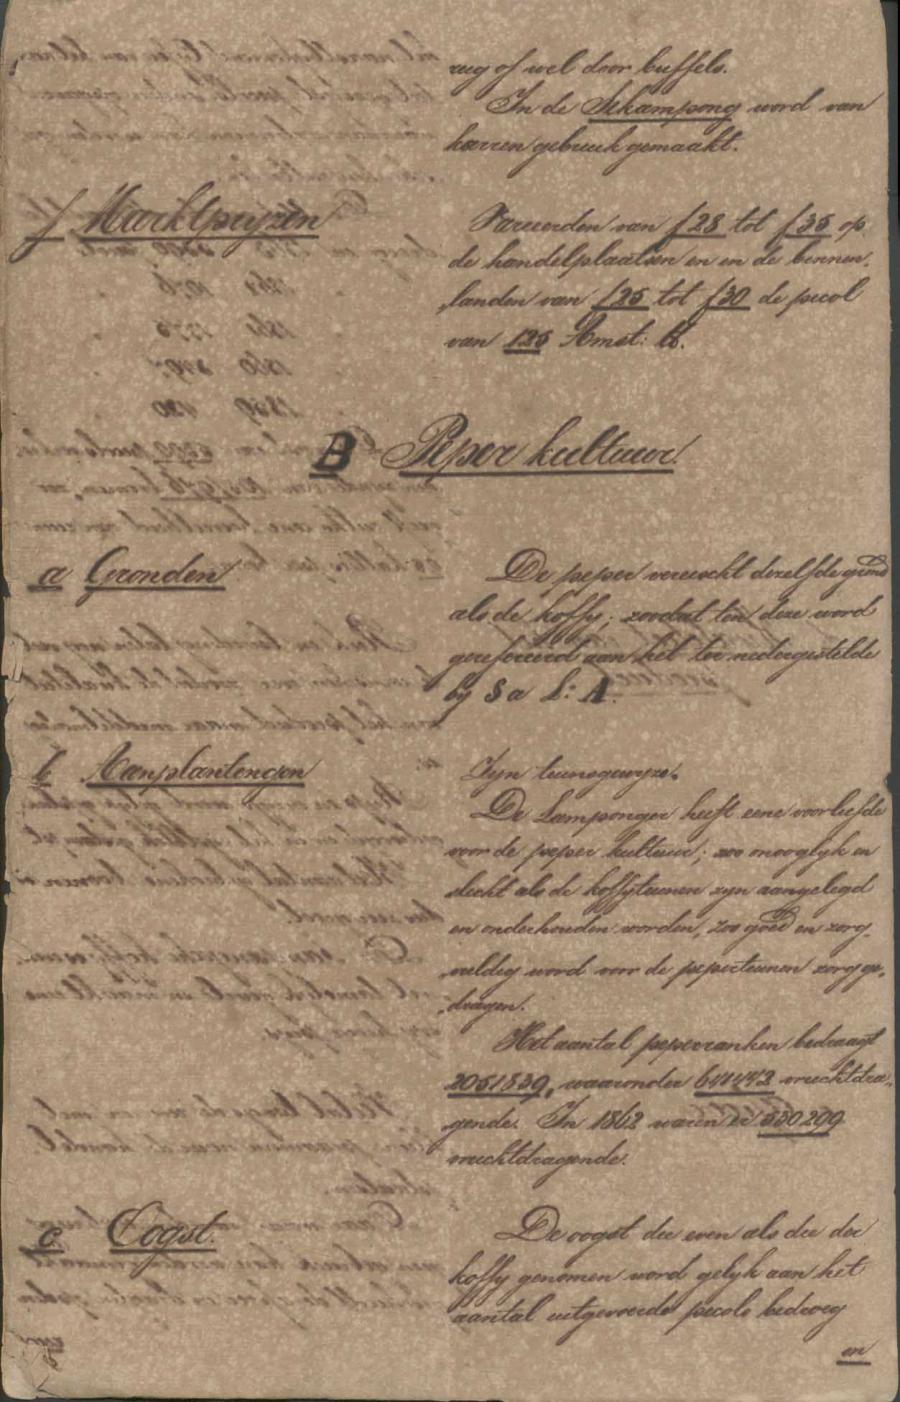 rug of wel door buffels.
In de Sekampong word van
karren gebruik gemaakt.
f Marktpryzen
Varieerden van f28 tot f35 op
de handelplaatsen en in de binnen,
landen van f25 tot f30 de pecol
van 125 Amst: lb.
B Peper kultuur.
a Gronden
De peper vereischt dezelfde grond
als de koffy; zoodat ten deze word
gerefereerd aan het ter nedergestelde
by § a L: A.
b Aanplantengen
Zyn tuinsgewyze.
De Lamponger heeft eene voorliefde
voor de peper kultuur; zoo onooglyk en
slecht als de koffytuinen zyn aangelegd
en onderhouden worden, zoo goed en zorg,
vuldig word voor de pepertuinen zorg ge,
dragen.
Het aantal peperranken bedraagt
2051839, waaronder 641442 vruchtdra,
gende. In 1862 waren er 530299
vruchtdragende.
c Oogst.
De oogst die even als die der
koffy genomen word gelyk aan het
aantal uitgevoerde pecols bedroeg
en